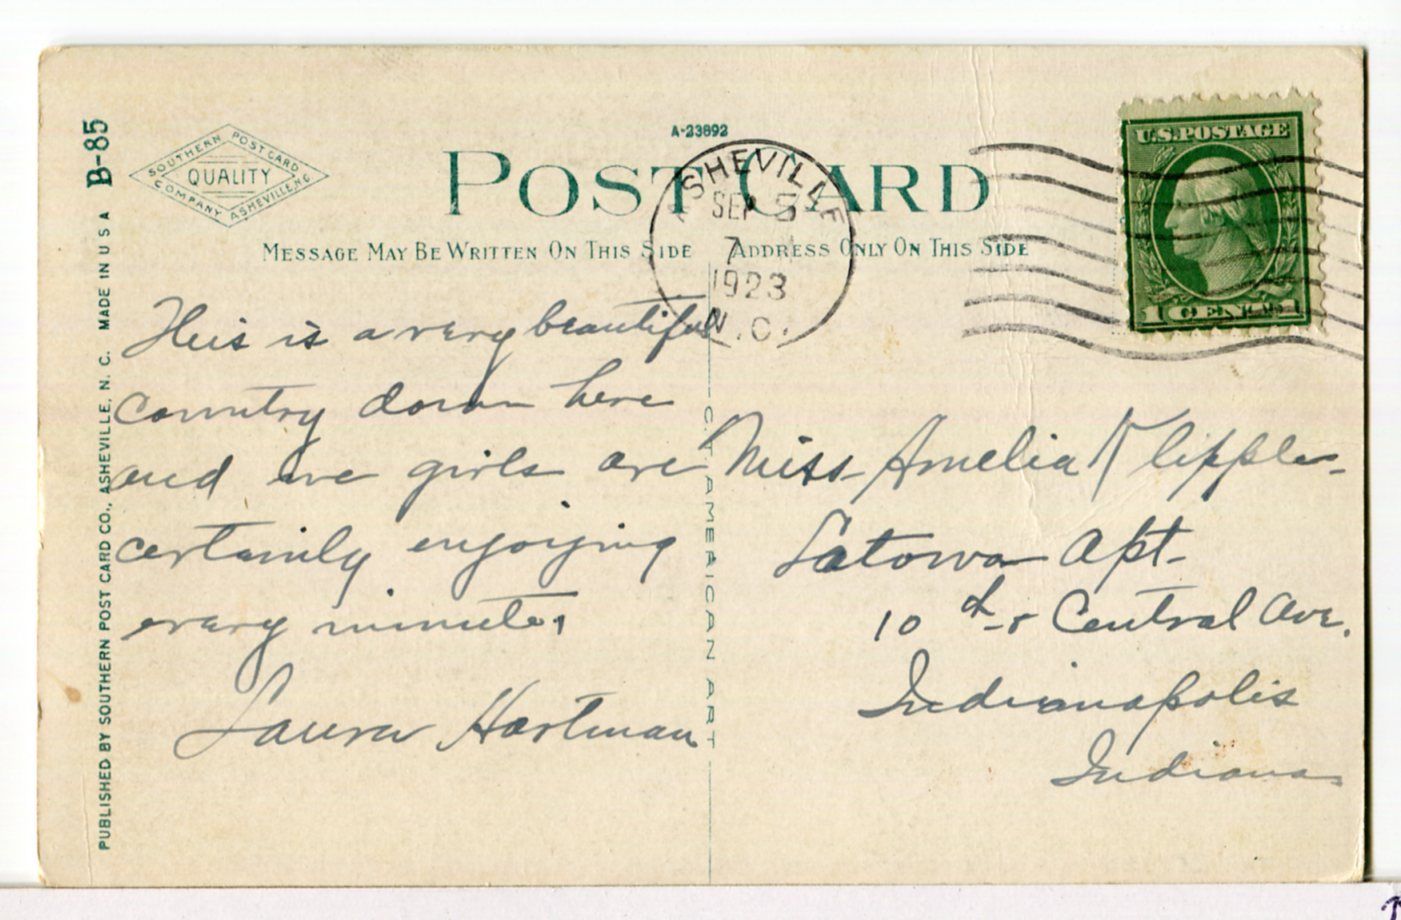 B-85
SOUTHERN POSTCARD
QUALITY
COMPANY ASHEVILLE N.C.
A-23892
POST CARD
MESSAGE MAY BE WRITTEN ON THIS SIDE
ADDRESS ONLY ON THIS SIDE
ASHEVILLE
SEP 5
7
1923
N.C.
U.S. POSTAGE
1 CENT 1
This is a very beautiful
country down here
and we girls are
certainly enjoying
every minute,
Laura Hartman
Miss Amelia Klippler
Apt.
10 th & Central Ave.
Indianapolis
Indiana
C.T. AMERICAN ART
PUBLISHED BY SOUTHERN POST CARD CO., ASHEVILLE, N. C. MADE IN U S A